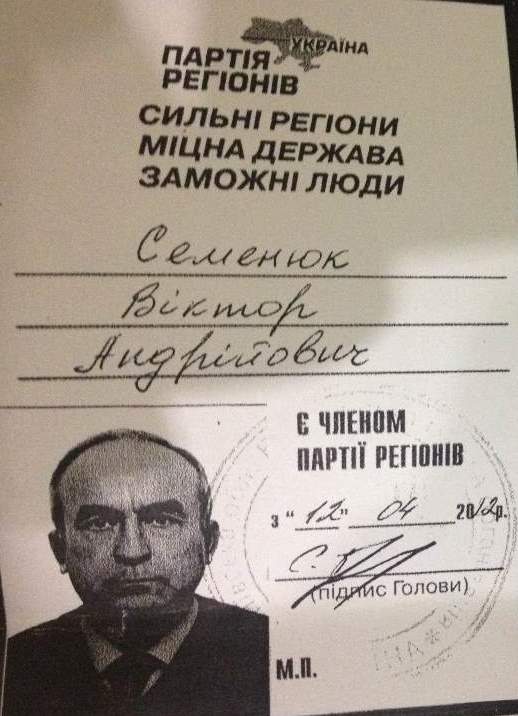 УКРАЇНА
ПАРТІЯ
РЕГІОНІВ
СИЛЬНІ РЕГІОНИ
МІЦНА ДЕРЖАВА
ЗАМОЖНІ ЛЮДИ
Семенюк
Віктор
Андрійович
Є ЧЛЕНОМ
ПАРТІЇ РЕГІОНІВ
з "12" 04 2012р.
(підпис Голови)
М.П.